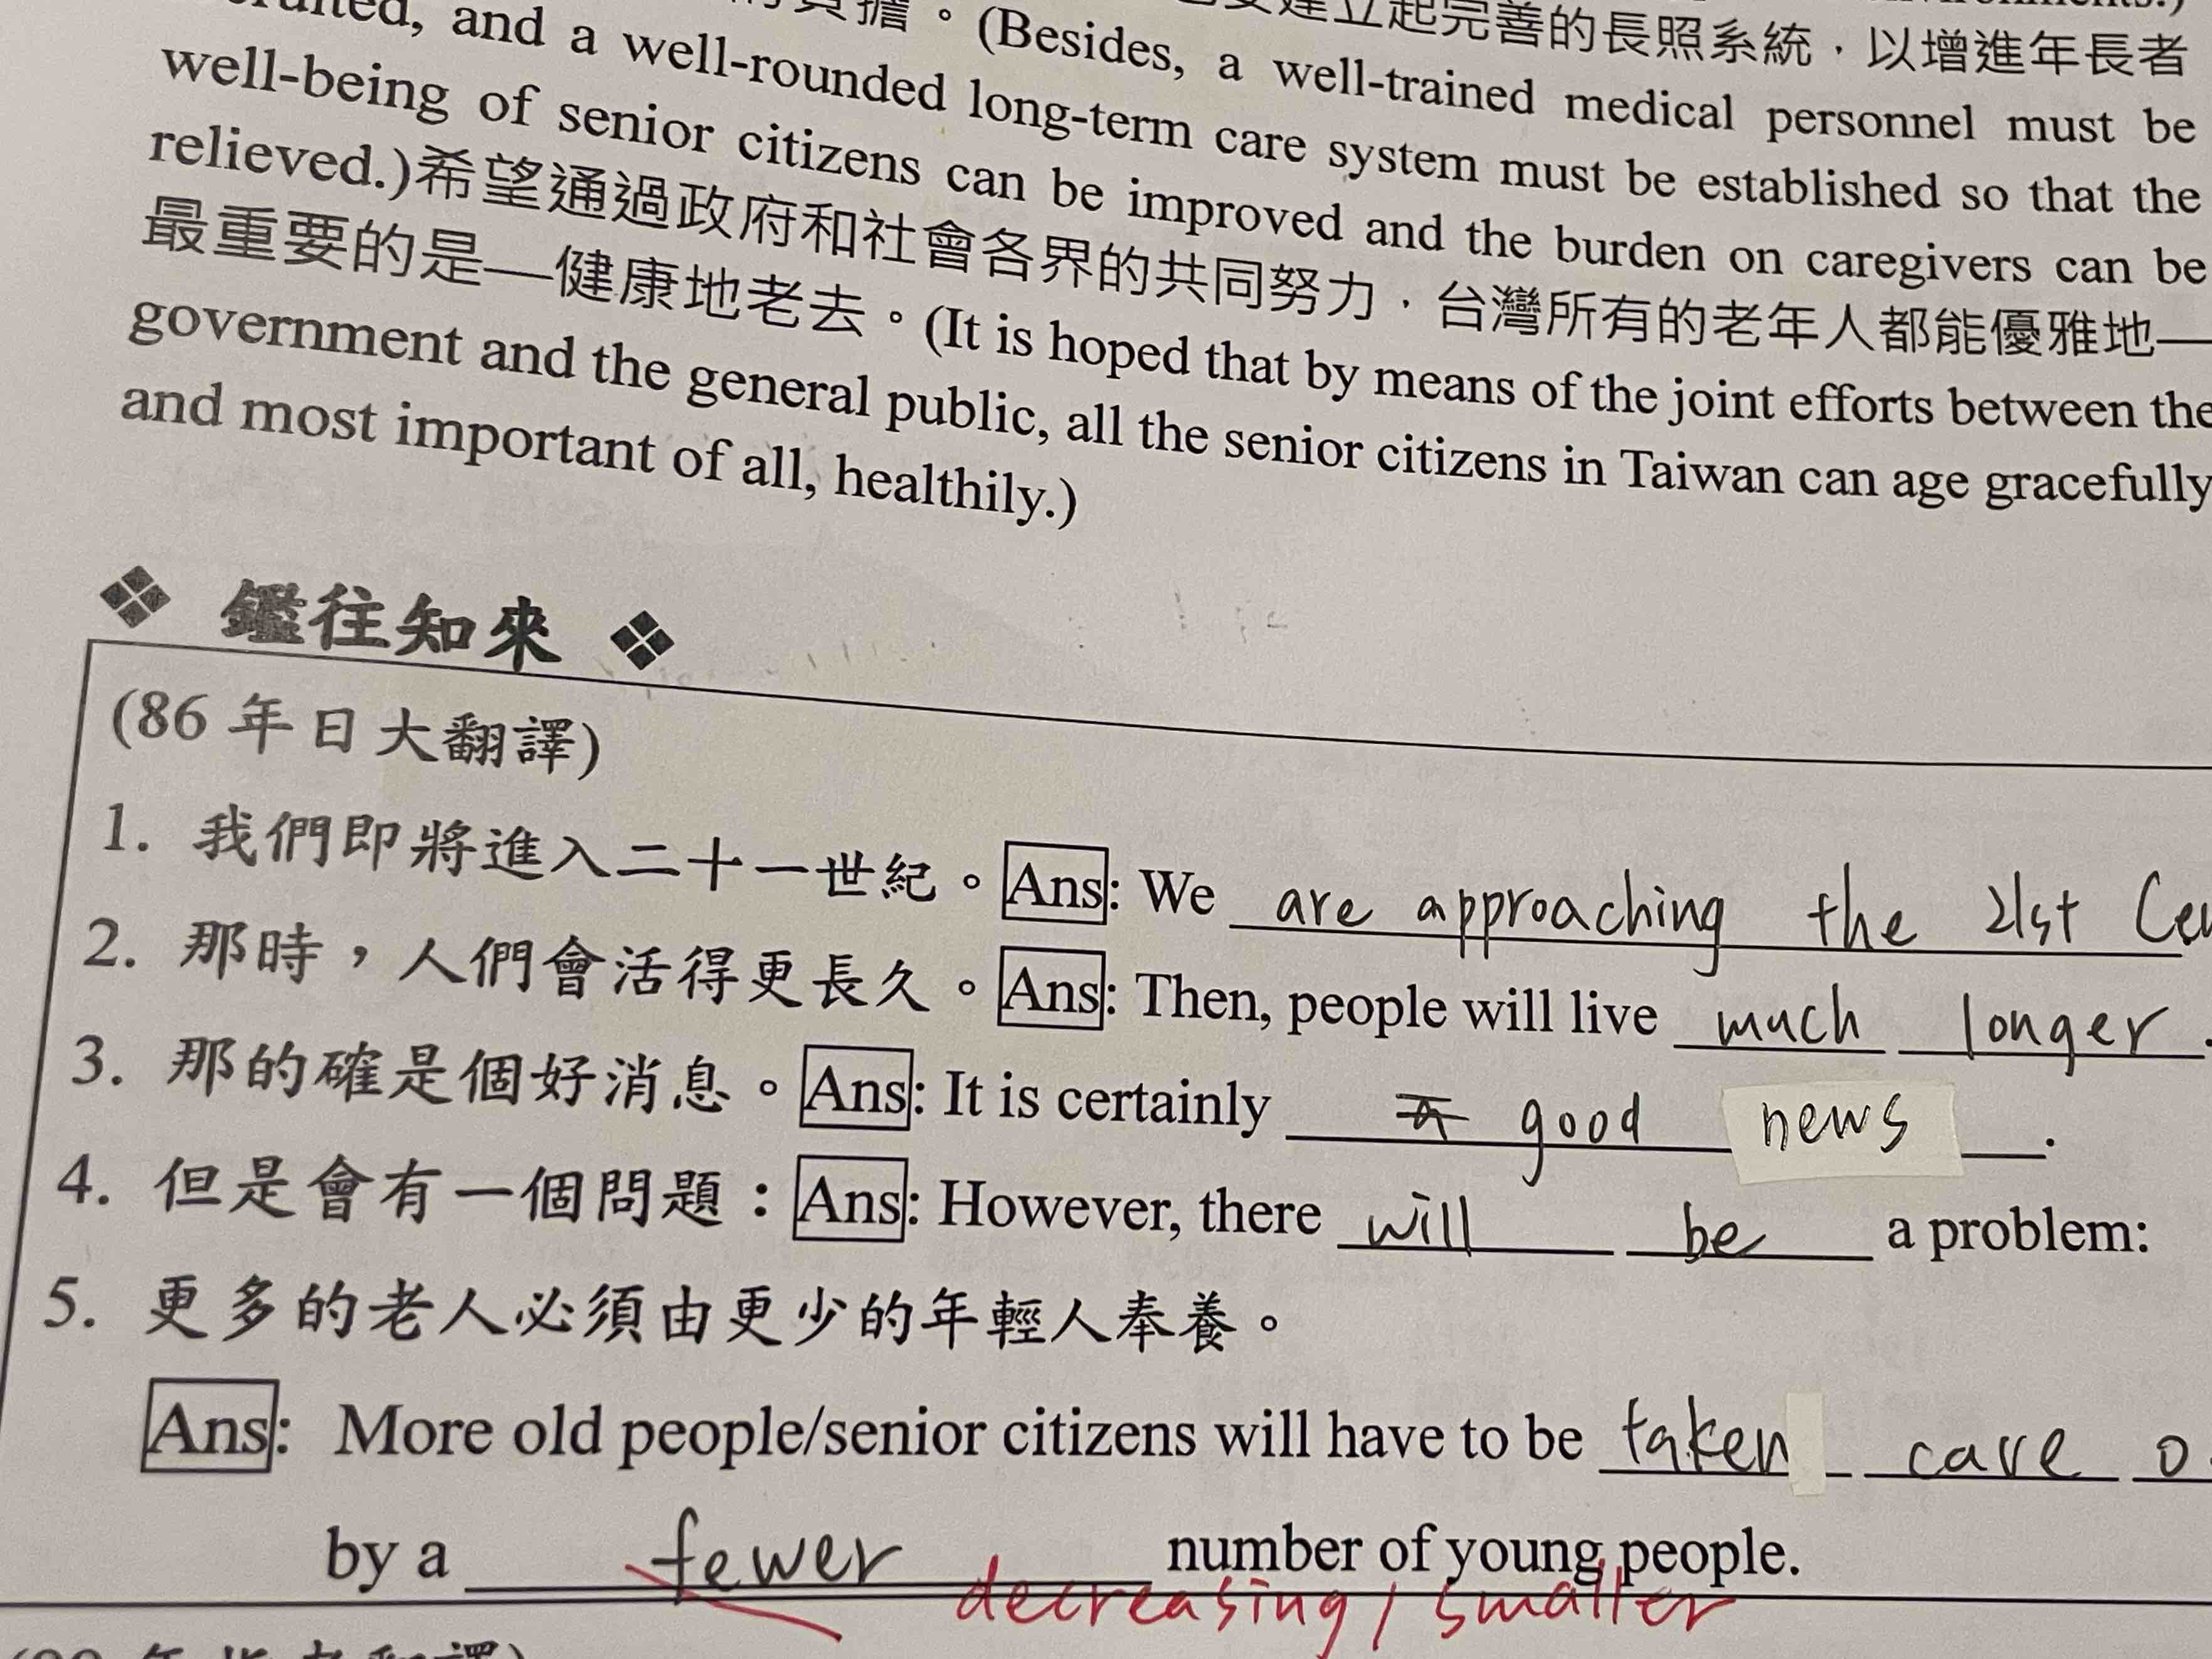 and a well-rounded long-term care system must be established so that the
的負擔。(Besides, a well-trained medical personnel must be
建立起完善的長照系統,以增進年長者
well-being of senior citizens can be improved and the burden on caregivers can be
relieved.)希望通過政府和社會各界的共同努力,台灣所有的老年人都能優雅地—
最重要的是—健康地老去。(It is hoped that by means of the joint efforts between the
government and the general public, all the senior citizens in Taiwan can age gracefully
and most important of all, healthily.)
❖ 鑑往知來 ❖
(86 年日大翻譯)
1. 我們即將進入二十一世紀。Ans: We are approaching the 21st
2. 那時,人們會活得更長久。Ans: Then, people will live much longer.
3. 那的確是個好消息。Ans: It is certainly good news.
4. 但是會有一個問題:Ans: However, there will be a problem:
5. 更多的老人必須由更少的年輕人奉養。
Ans: More old people/senior citizens will have to be taken care
by a fewer number of young people.
decreasing / smaller